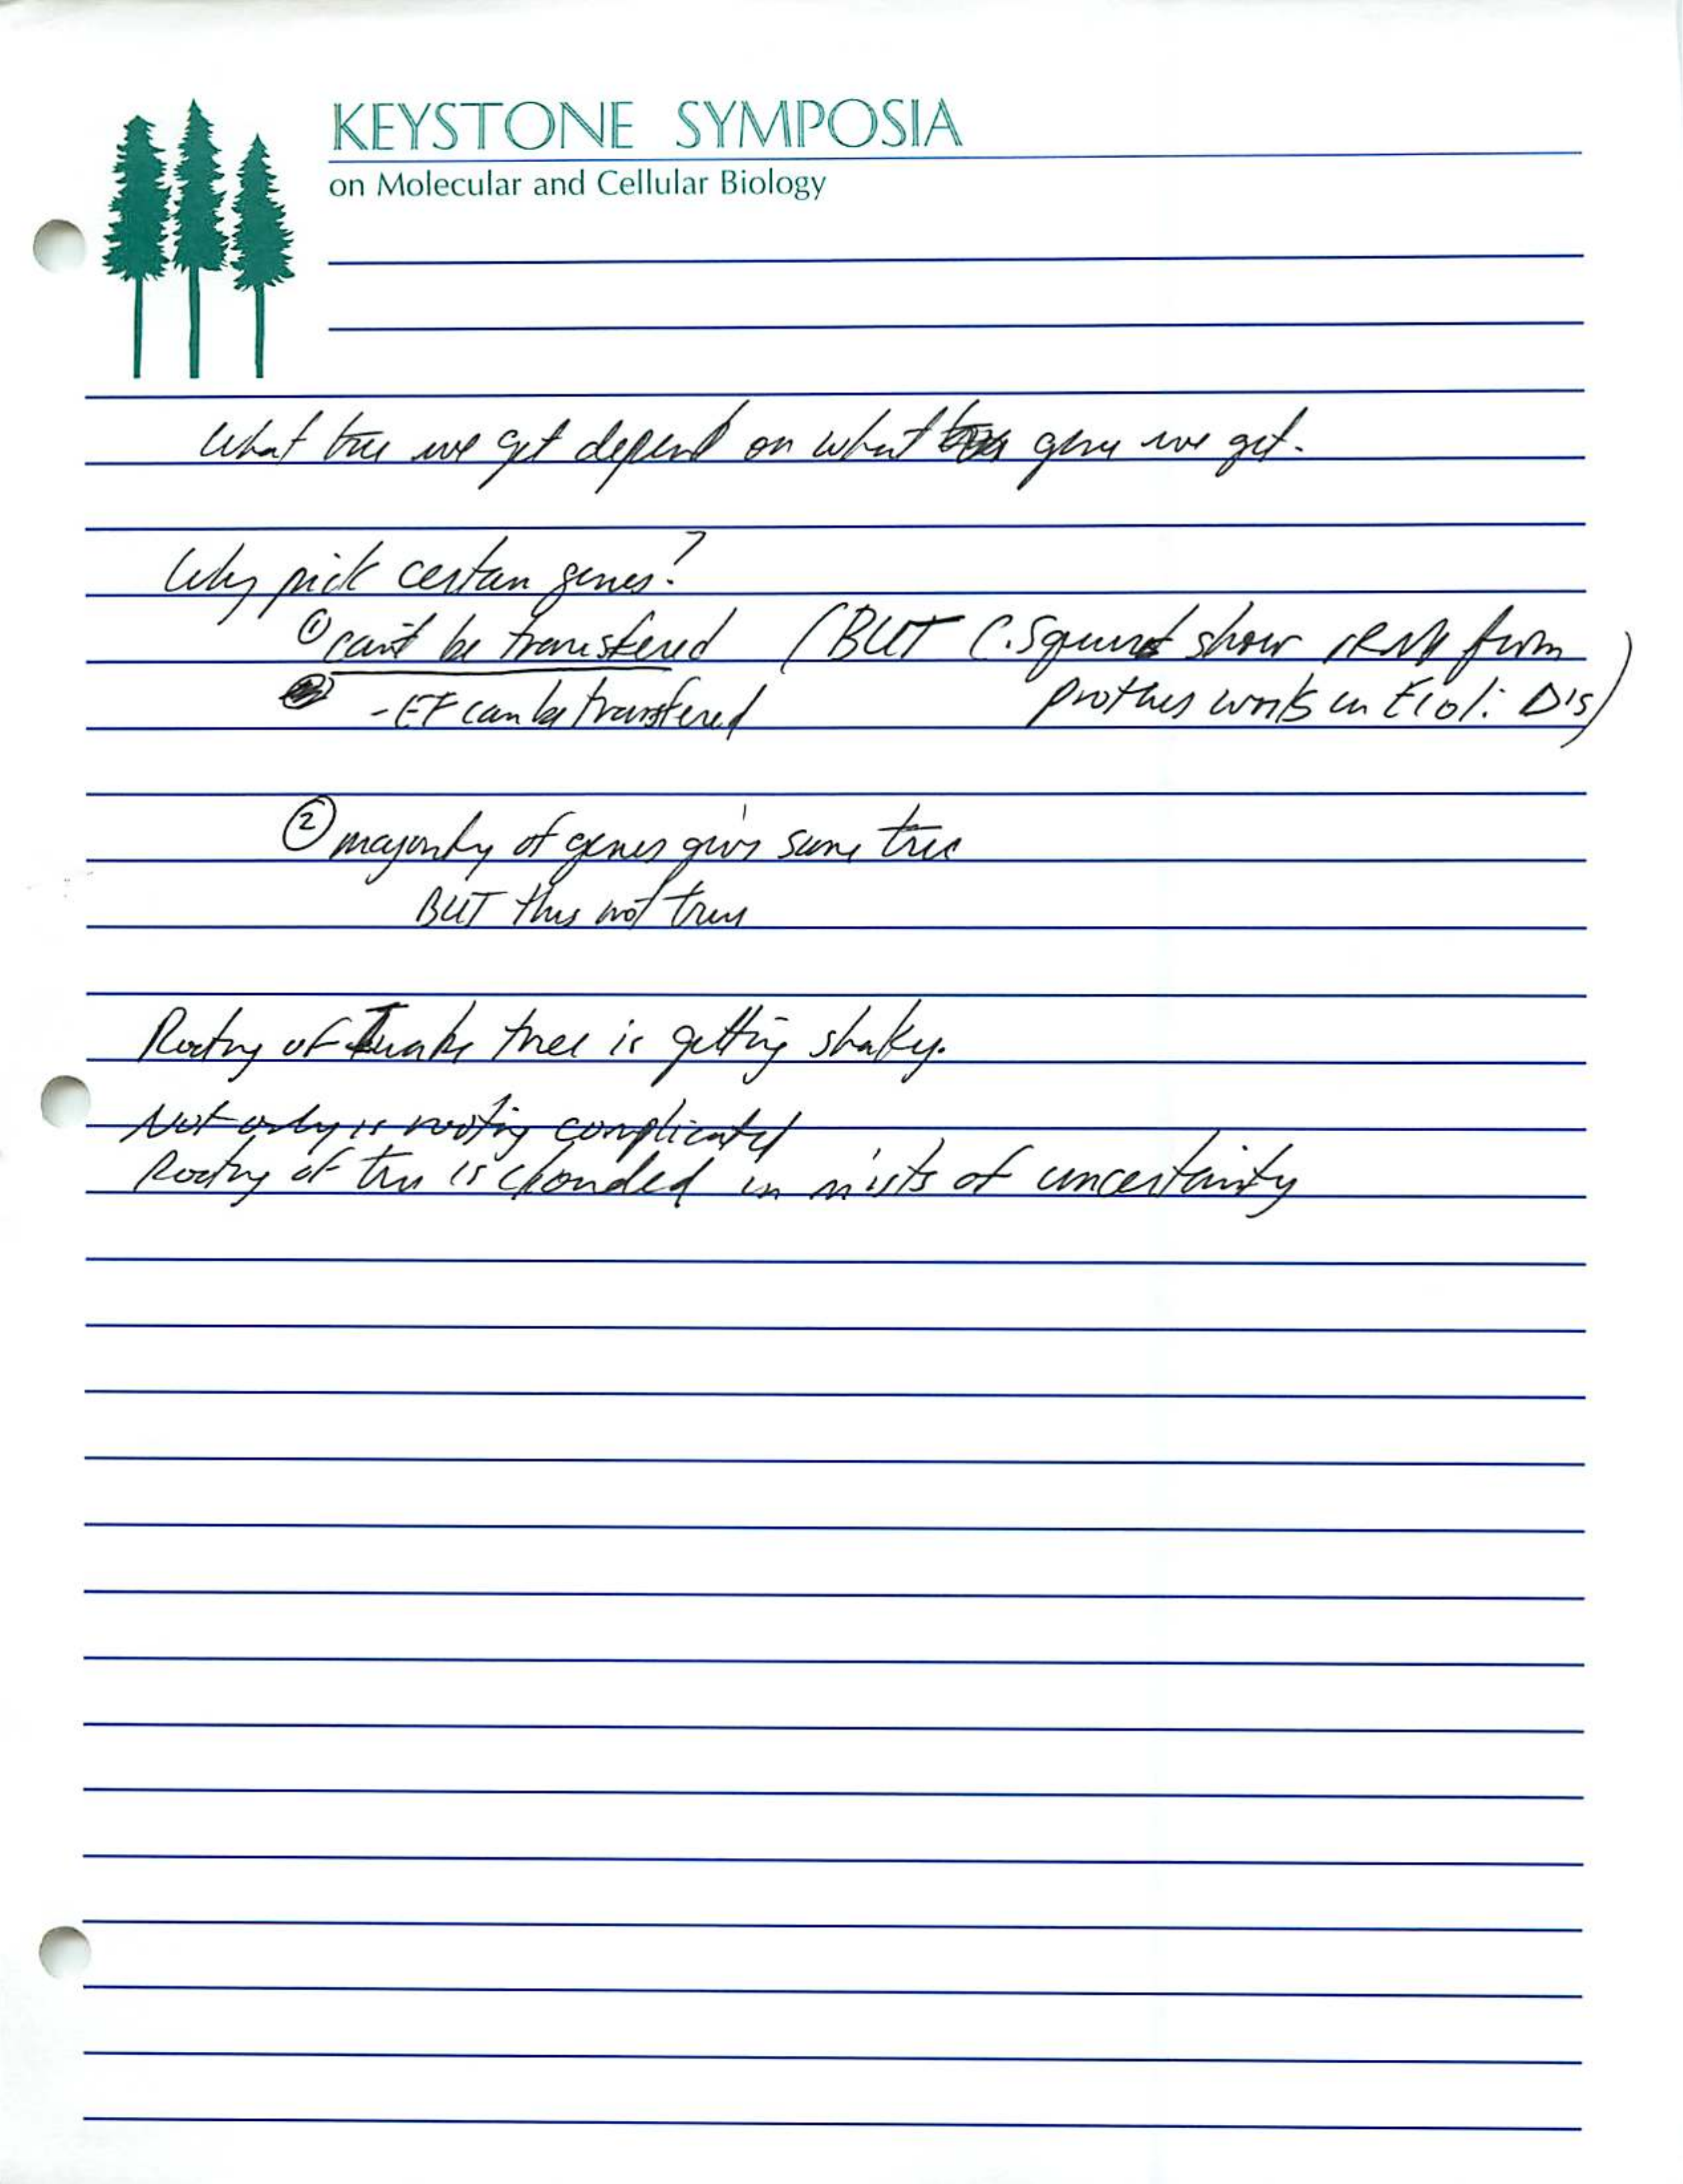 KEYSTONE SYMPOSIA
on Molecular and Cellular Biology
What tree we get depend on what gene we get.
Why pick certan genes?
① can't be transfered (BUT C. Squires show rRNA from
- EF can be transfered proteus works in E coli: Dis)
② majority of genes give same tree
BUT this not true
Rooting of tree is getting shaky.
Not only is rooting complicated
Rooting of tree is clouded in mists of uncertainty